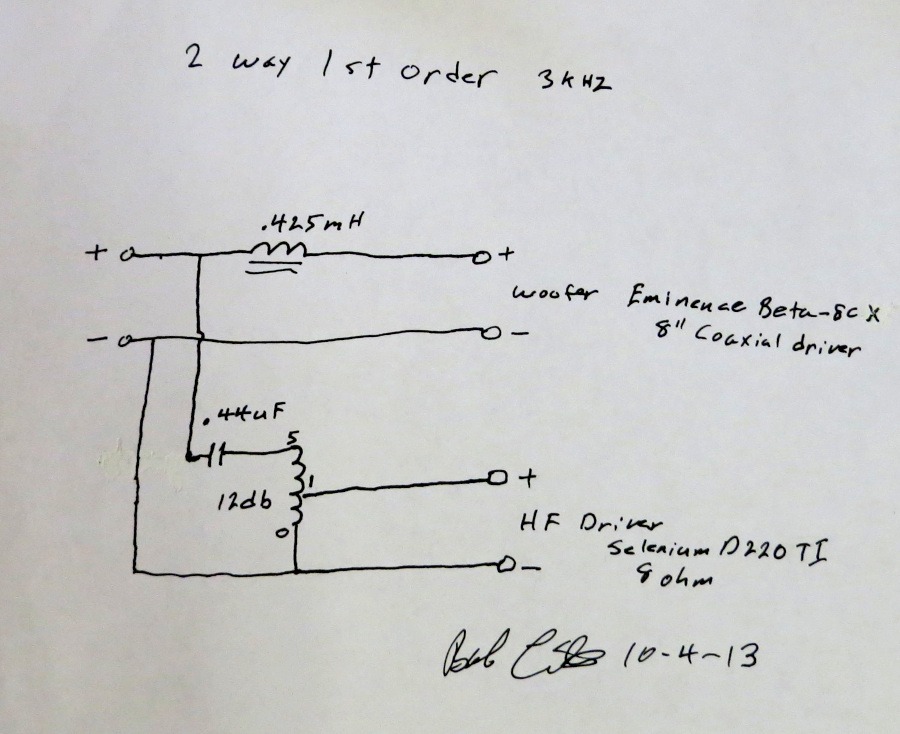 2 way 1st order 3kHZ
.425mH
+ +
woofer Eminence Beta-8cX
8" Coaxial driver
- -
.44uF
5
12db 1 +
0
HF Driver
Selenium D220TI
8 ohm
-
Bob 10-4-13